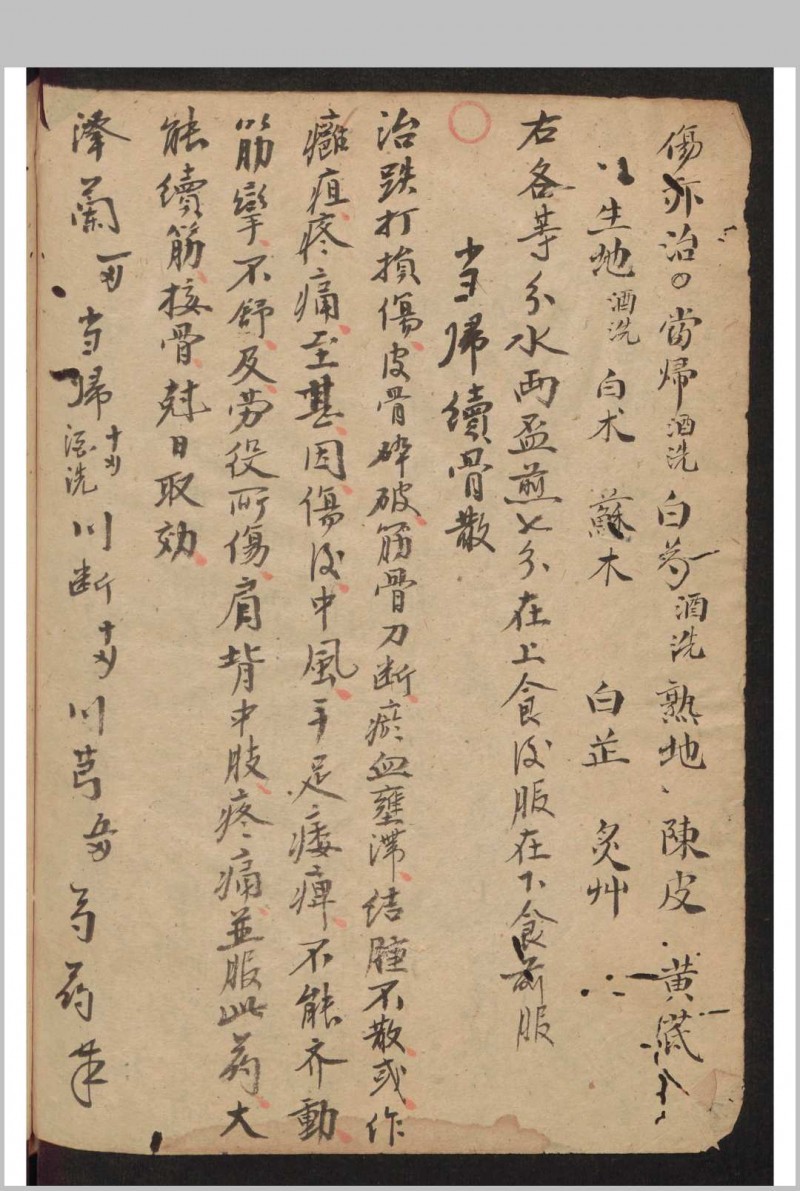 傷亦治。當帰酒洗白芍酒洗熟地、陳皮黄芪
生地酒洗白术蘇木白芷炙艸
右各等分水两盃煎七分在上食後服在下食前服
当帰續骨散
治跌打損傷皮骨碎破筋骨刀断瘀血壅滞結腫不散或作
癰疽疼痛至甚因傷後中風手足痿痺不能齐動
筋攣不舒及劳役所傷肩背中肢疼痛並服此药大
能續筋接骨尅日取効
澤蘭 当帰酒洗川断 川芎 芍药